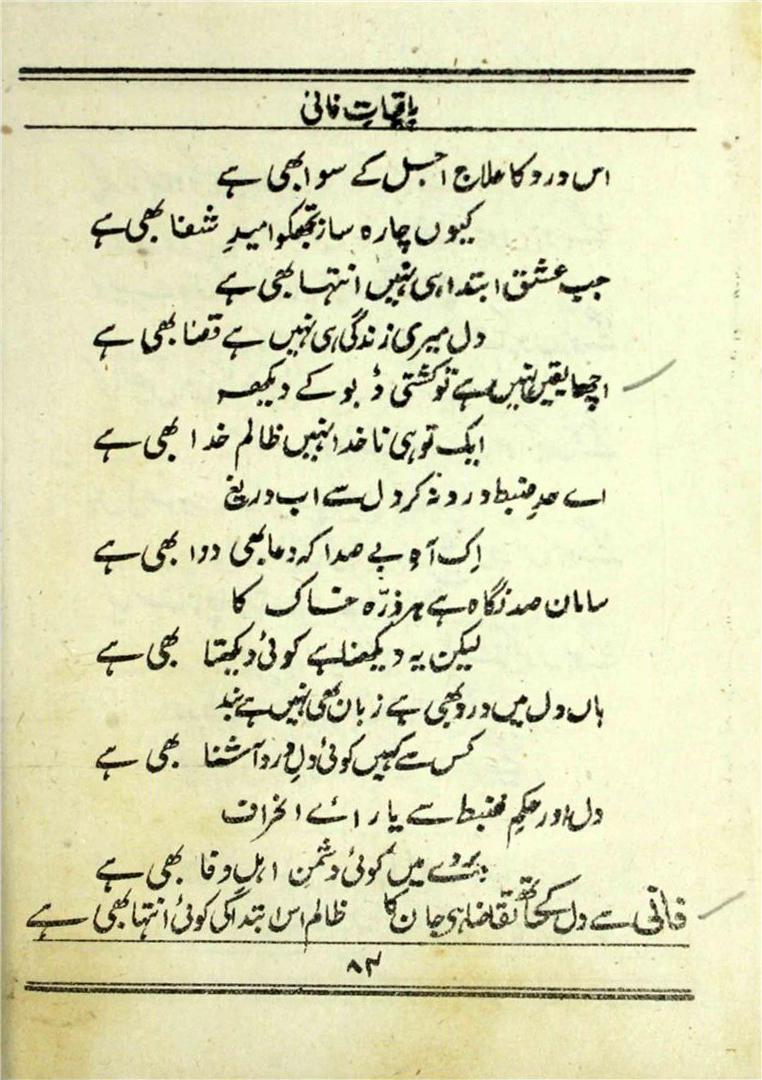 باقیات فانی
اس درد کا علاج اجل کے سوا بھی ہے
کیوں چارہ ساز تجھکو امیدِ شفا بھی ہے
جب عشق ابتدا ہی نہیں انتہا بھی ہے
دل میری زندگی ہی نہیں ہے قضا بھی ہے
اچھا یقیں نہیں ہے تو کشتی ڈبو کے دیکھ
ایک تو ہی ناخدا نہیں ظالم خدا بھی ہے
اے ضبط درد نہ کر دل سے اب دریغ
اِک آہِ بے صدا کہ دعا بھی دوا بھی ہے
سامان صد نگاہ ہے ہر ذرّہ خاک کا
لیکن یہ دیکھنا ہے کوئی دیکھتا بھی ہے
ہاں دل میں درد بھی ہے زبان بھی نہیں ہے بند
کس سے کہیں کوئی دلِ درد آشنا بھی ہے
دل اور حکمِ ضبط سے یارائے انحراف
پردے میں کوئی دشمنِ اہلِ وفا بھی ہے
فانی سے دل کے ساتھ تقاضا ہی جان کا ظالم اس ابتدا کی کوئی انتہا بھی ہے
۸۳